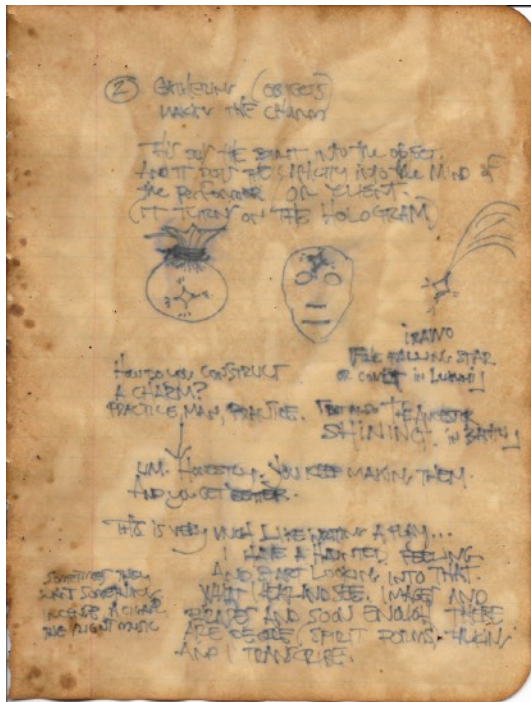 ② GATHERING (OBJECTS)
MAKING THE CHARM
THIS PUTS THE SPIRIT into the object.
AND IT PUTS THE SPECIFICITY into the MIND OF
the PERFORMER OR CLIENT.
(IT TURNS ON THE HOLOGRAM)
IRAWO
THE FALLING STAR
OR COMET in Lukumi
How do you CONSTRUCT
A CHARM?
PRACTICE, MAN, PRACTICE.
But also THE ANCESTOR
SHINING. in
UM. HONESTLY. YOU KEEP MAKING THEM.
AND YOU GET BETTER.
THIS IS VERY MUCH LIKE WRITING A PLAY...
I HAVE A HAUNTED FEELING
AND START LOOKING INTO THAT.
WHAT I HEAR AND SEE. IMAGES AND
AND SOON ENOUGH THERE
ARE PEOPLE (SPIRIT FORMS) TALKING
AND I TRANSCRIBE.
SOMETIMES THEY
WANT SOMETHING
INCENSE, A CIGAR,
THE RIGHT MUSIC